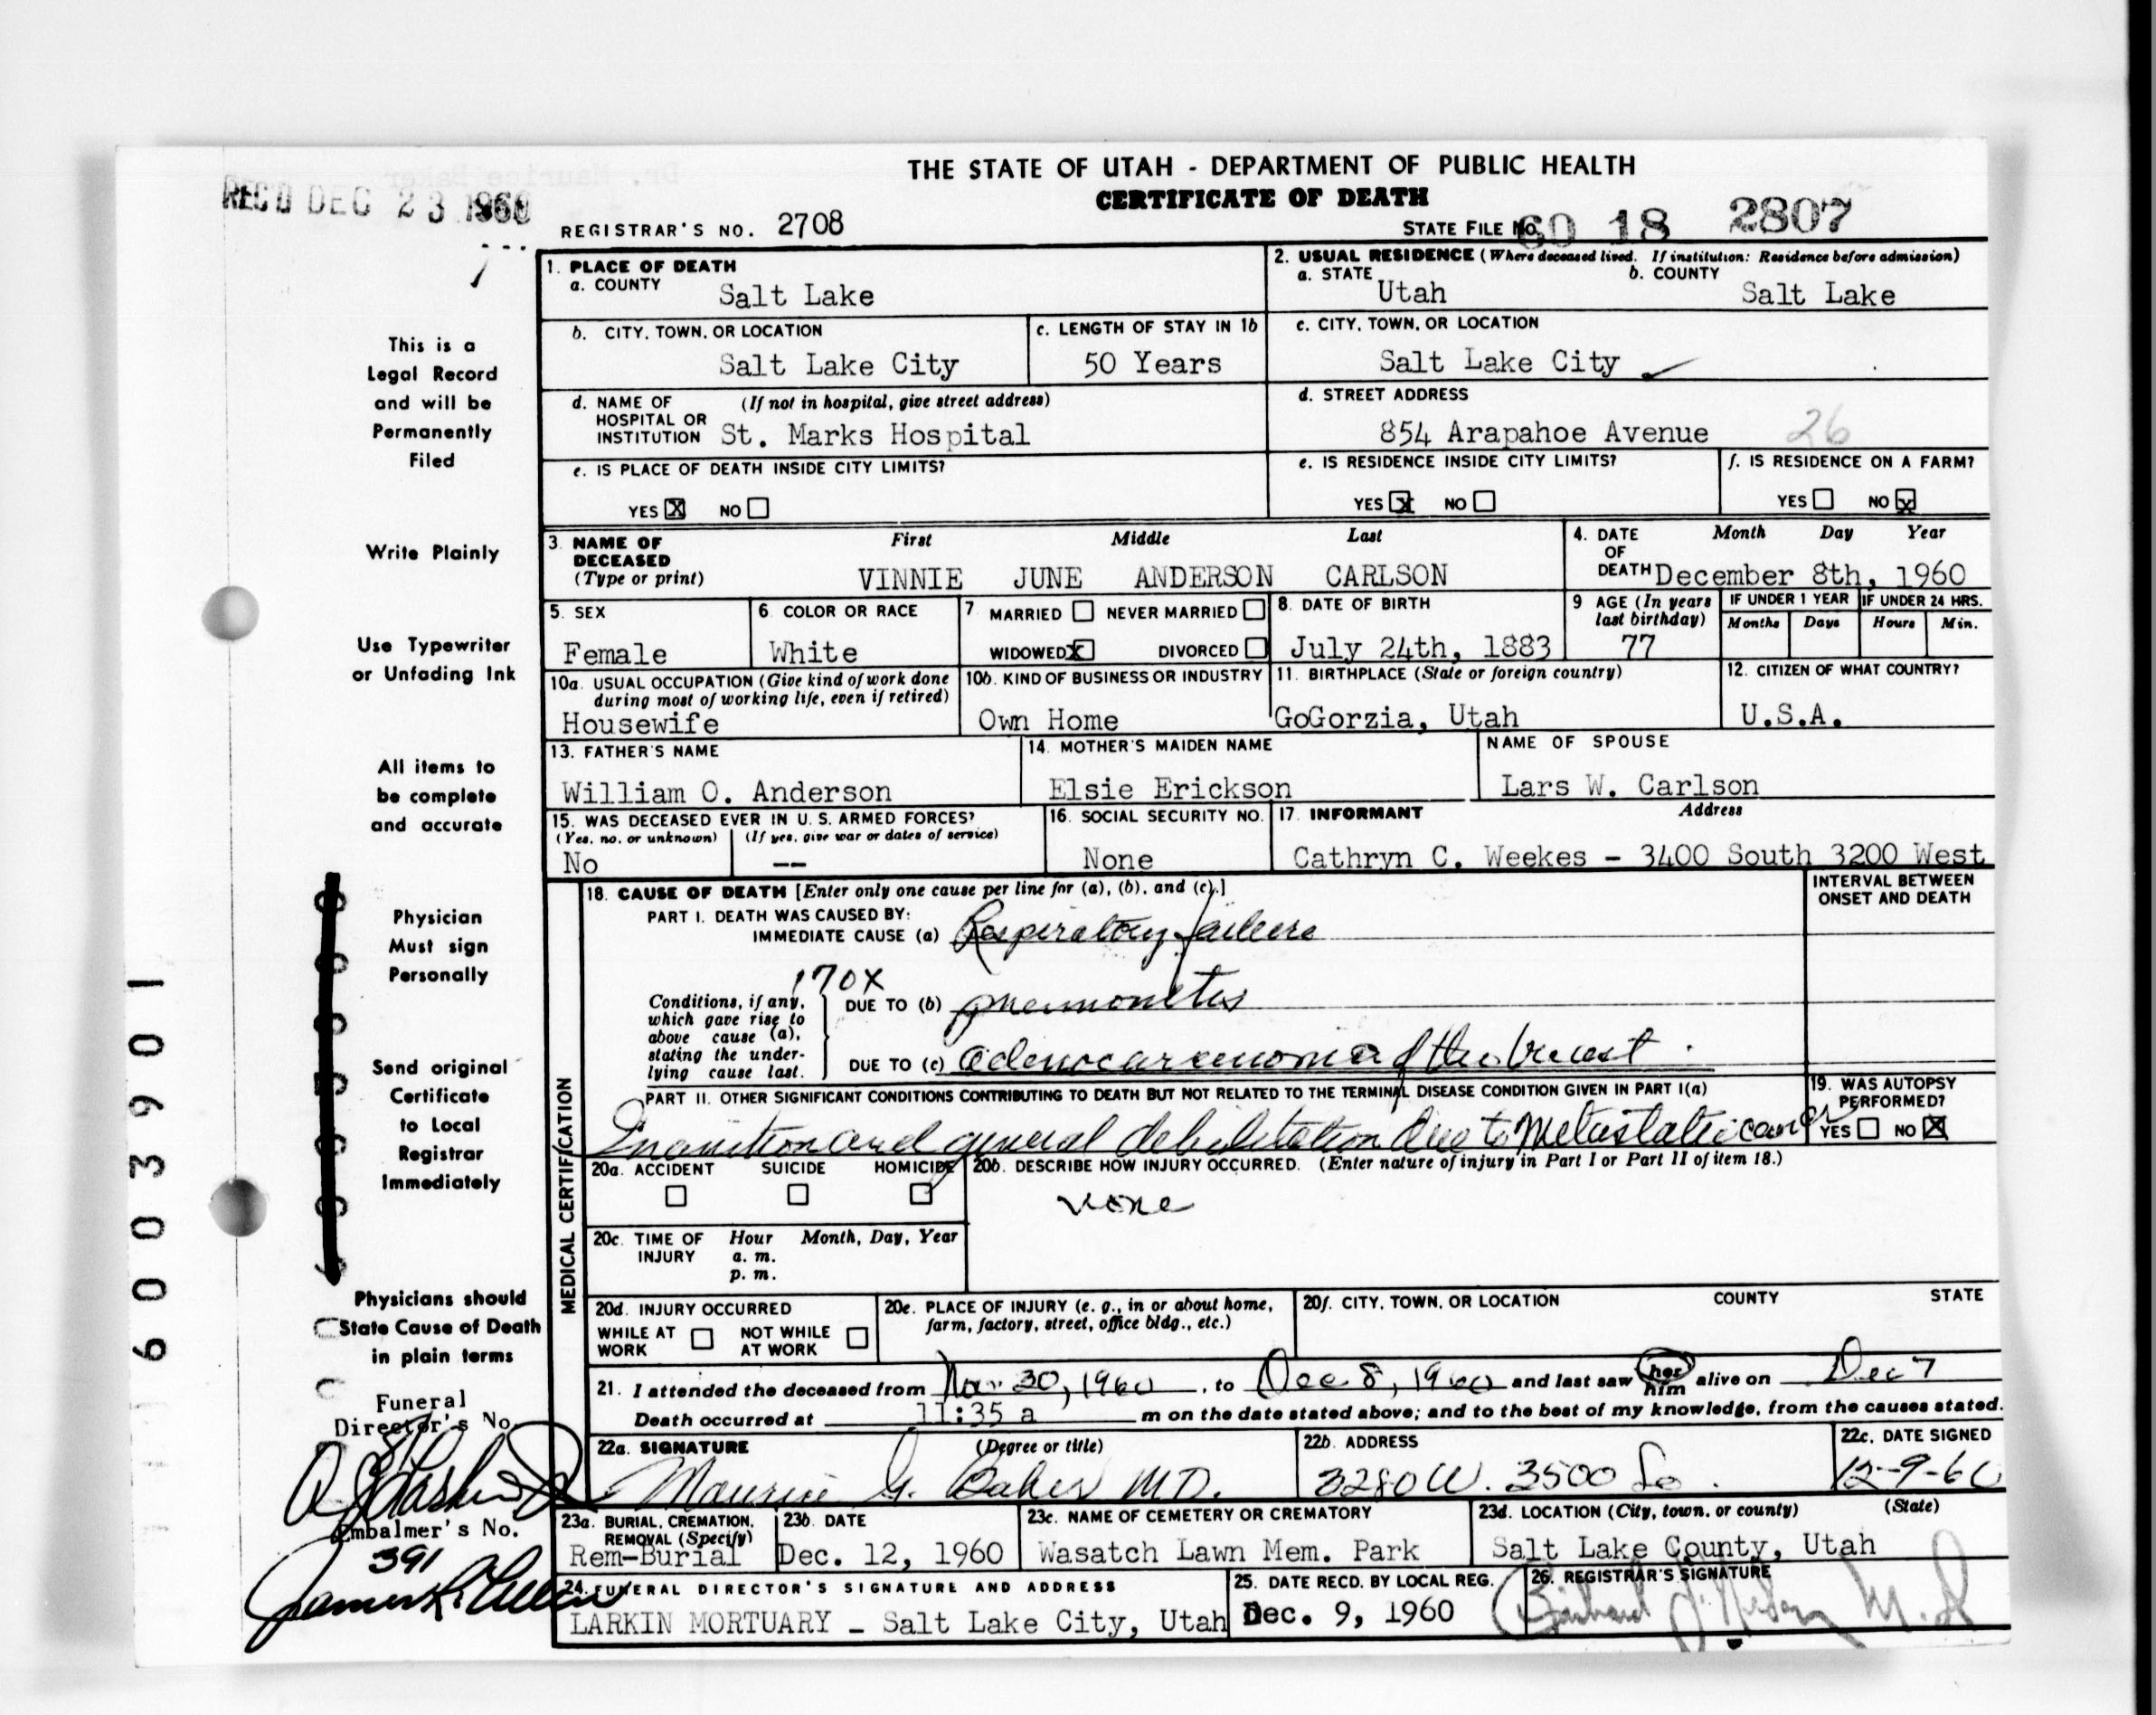 THE STATE OF UTAH - DEPARTMENT OF PUBLIC HEALTH
CERTIFICATE OF DEATH
REC'D DEC 23 1960
REGISTRAR'S NO. 2708
STATE FILE NO. 60 18 2807
1. PLACE OF DEATH
a. COUNTY Salt Lake
2. USUAL RESIDENCE (Where deceased lived. If institution: Residence before admission)
a. STATE Utah b. COUNTY Salt Lake
b. CITY, TOWN, OR LOCATION Salt Lake City
c. LENGTH OF STAY IN 1b 50 Years
c. CITY, TOWN, OR LOCATION Salt Lake City
d. NAME OF HOSPITAL OR INSTITUTION (If not in hospital, give street address) St. Marks Hospital
d. STREET ADDRESS 854 Arapahoe Avenue 26
e. IS PLACE OF DEATH INSIDE CITY LIMITS? YES X NO
e. IS RESIDENCE INSIDE CITY LIMITS? YES X NO
f. IS RESIDENCE ON A FARM? YES NO X
3. NAME OF DECEASED (Type or print) First Middle Last
VINNIE JUNE ANDERSON CARLSON
4. DATE OF DEATH Month Day Year
December 8th, 1960
5. SEX Female
6. COLOR OR RACE White
7. MARRIED NEVER MARRIED
WIDOWED X DIVORCED
8. DATE OF BIRTH July 24th, 1883
9 AGE (In years last birthday) 77
IF UNDER 1 YEAR Months Days
IF UNDER 24 HRS. Hours Min.
10a. USUAL OCCUPATION (Give kind of work done during most of working life, even if retired) Housewife
10b. KIND OF BUSINESS OR INDUSTRY Own Home
11. BIRTHPLACE (State or foreign country) GoGorzia, Utah
12. CITIZEN OF WHAT COUNTRY? U.S.A.
13. FATHER'S NAME William O. Anderson
14. MOTHER'S MAIDEN NAME Elsie Erickson
NAME OF SPOUSE Lars W. Carlson
15. WAS DECEASED EVER IN U. S. ARMED FORCES?
(Yes, no, or unknown) (If yes, give war or dates of service)
No --
16. SOCIAL SECURITY NO. None
17. INFORMANT Address
Cathryn C. Weekes - 3400 South 3200 West
MEDICAL CERTIFICATION
18. CAUSE OF DEATH [Enter only one cause per line for (a), (b), and (c).]
INTERVAL BETWEEN ONSET AND DEATH
PART I. DEATH WAS CAUSED BY:
IMMEDIATE CAUSE (a) Respiratory failure
170X
Conditions, if any, which gave rise to above cause (a), stating the underlying cause last.
DUE TO (b) pneumonitis
DUE TO (c) adenocarcinoma of the breast.
PART II. OTHER SIGNIFICANT CONDITIONS CONTRIBUTING TO DEATH BUT NOT RELATED TO THE TERMINAL DISEASE CONDITION GIVEN IN PART I(a)
Inanition and general debilitation due to Metastatic cancer
19. WAS AUTOPSY PERFORMED? YES NO X
20a. ACCIDENT SUICIDE HOMICIDE
20b. DESCRIBE HOW INJURY OCCURRED. (Enter nature of injury in Part I or Part II of item 18.)
none
20c. TIME OF INJURY Hour a. m. p. m. Month, Day, Year
20d. INJURY OCCURRED
WHILE AT WORK NOT WHILE AT WORK
20e. PLACE OF INJURY (e. g., in or about home, farm, factory, street, office bldg., etc.)
20f. CITY, TOWN, OR LOCATION COUNTY STATE
21. I attended the deceased from Nov 30, 1960, to Dec 8, 1960 and last saw her him alive on Dec 7
Death occurred at 11:35 a m on the date stated above; and to the best of my knowledge, from the causes stated.
22a. SIGNATURE (Degree or title)
Maurice G. Baker M.D.
22b. ADDRESS 3280 W. 3500 So.
22c. DATE SIGNED 12-9-60
23a. BURIAL, CREMATION, REMOVAL (Specify) Rem-Burial
23b. DATE Dec. 12, 1960
23c. NAME OF CEMETERY OR CREMATORY Wasatch Lawn Mem. Park
23d. LOCATION (City, town, or county) (State)
Salt Lake County, Utah
24. FUNERAL DIRECTOR'S SIGNATURE AND ADDRESS
LARKIN MORTUARY - Salt Lake City, Utah
25. DATE RECD. BY LOCAL REG. Dec. 9, 1960
26. REGISTRAR'S SIGNATURE
This is a
Legal Record
and will be
Permanently
Filed
Write Plainly
Use Typewriter
or Unfading Ink
All items to
be complete
and accurate
Physician
Must sign
Personally
Send original
Certificate
to Local
Registrar
Immediately
Physicians should
State Cause of Death
in plain terms
Funeral
Director's No.
Embalmer's No.
391
6003901